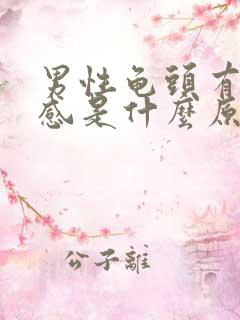 男性龟頭有
感是什麼原
公子離